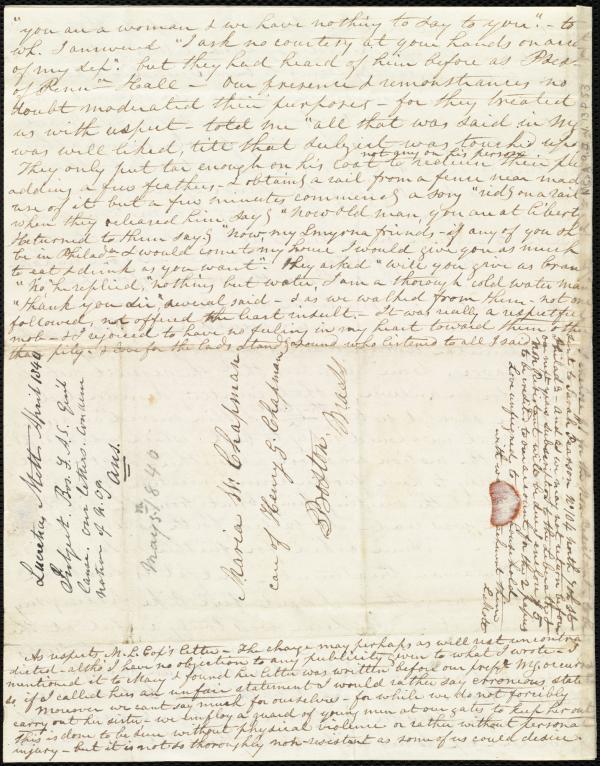 "you are a woman & we have nothing to say to you". - to
wh. I answered "I ask no courtesy at your hands on acct
of my sex". but they had heard of him before as Presdt
of Penna Hall - Our presence & remonstrances no
doubt moderated their purposes - for they treated
us with respect - told me "all that was said in my
was well liked, till that subject was touched up
They only put tar enough on his coat to redeem their pl
not any on his person
adding a few feathers - & obtaing a rail from a fence near made
use of it but a few minutes commencg a song "ridg on a rail
when they released him sayg "now old man, you are at liberty
He turned to them sayg "now, my Smyrna friends - if any of you sh
be in Philada & would come to my house I would give you as much
to eat & drink as you want" They asked "will you give us bran
"no" he replied, "nothing but water, I am a thorough cold water man
"thank you sir", several said - & as we walked from them - not one
followed, nor offered the least insult. - It was really a respectful
mob - & I rejoiced to have no feeling in my heart toward them othe
than pity - & love for the lads standg around who listened to all I said
Lucretia Mott. April 1840
Subject. Bos. F. A. S. Guilt
Cause. Our letters. Condem
nation of N. Ys
Ans.
May 5th 1840
Maria W. Chapman
care of Henry G. Chapman
Boston
Mass
sent to Sarah Pearson No north 9th St
Philada - and as we may not return before
Love unfeigned to all your household
L. Mott
As respects M. L. Cox's letter - The charge may perhaps as well not uncontra
dicted - altho' I have no objection to any publicity given to what I wrote - I
mentioned it to Mary & found her letter was written before our prest McG. occurred
so if I called hers an unfair statement I would rather say erroneous state
Moreover we cant say much for ourselves - for while we do not forcibly
carry out her sister - we employ a guard of young men at our gates to keep her out
this is done to be sure without physical violence or rather without persona
injury - but it is not so thoroughly non-resistant as some of us could desire -